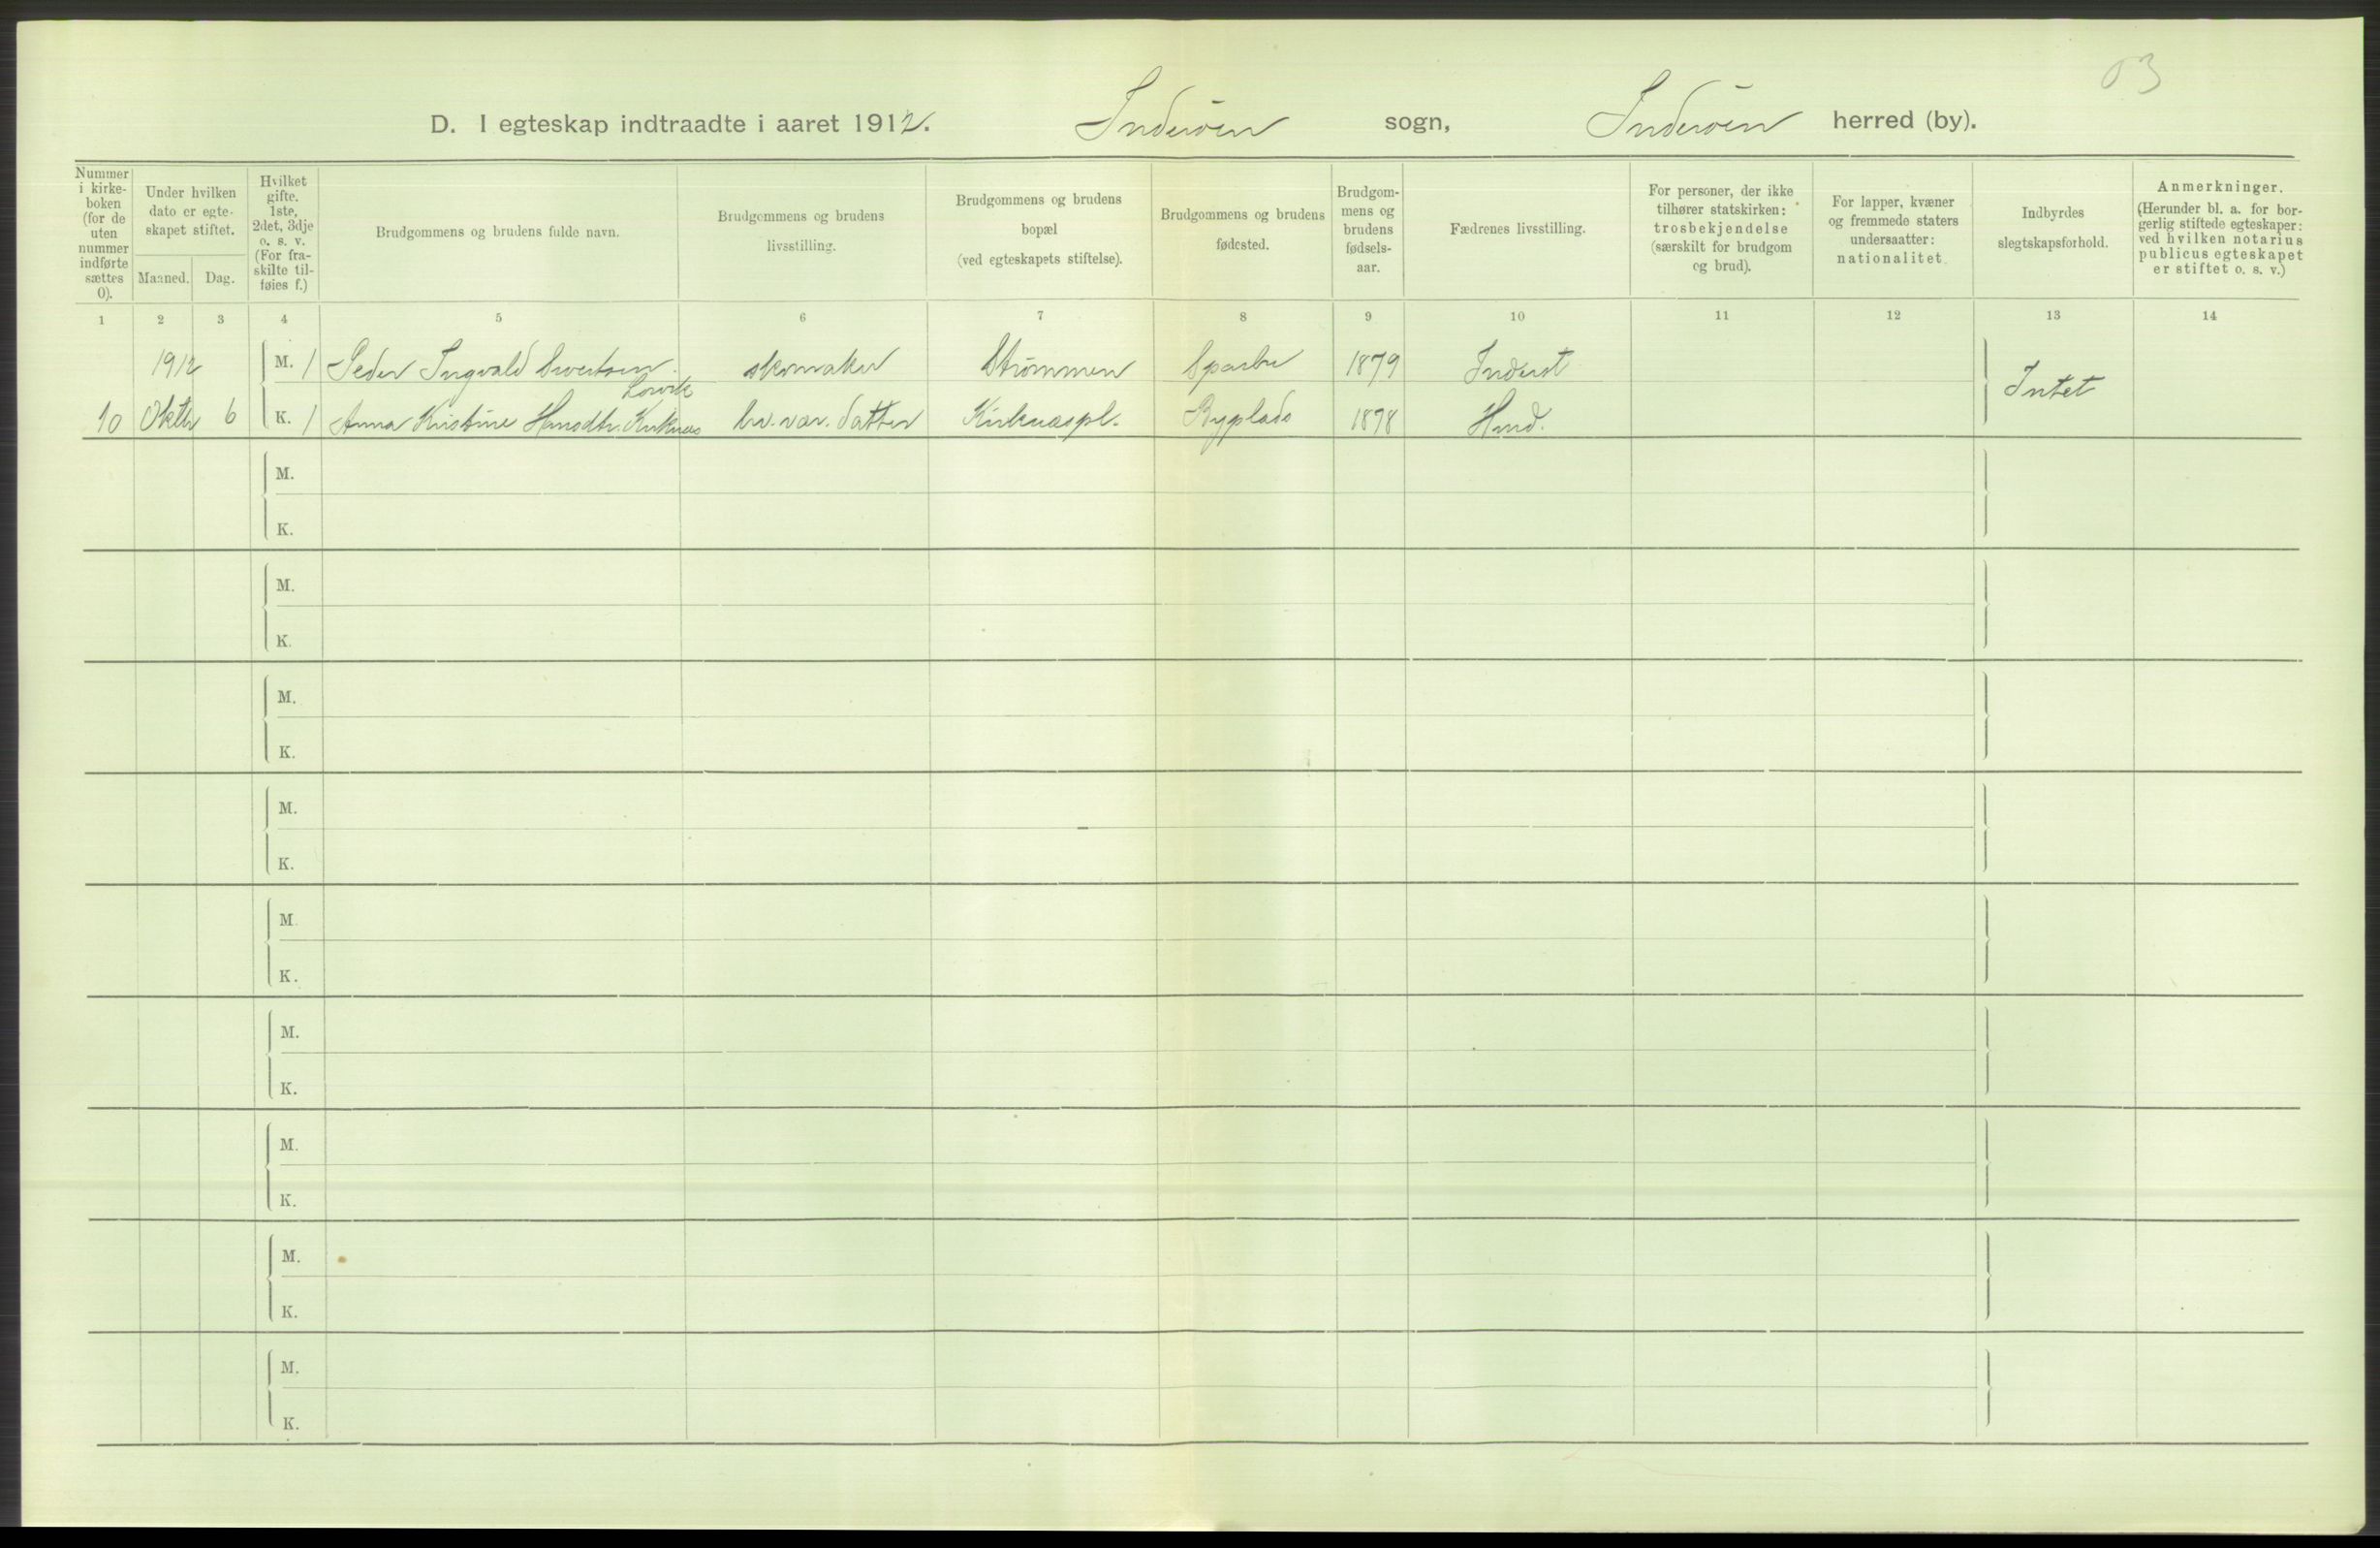 03
D. I egteskap indtraadte i aaret 1912. Inderøen sogn, Inderøen herred (by).
Nummer i kirkeboken (for de uten nummer indførte sættes 0).
Under hvilken dato er egteskapet stiftet.
Maaned. Dag.
Hvilket gifte. 1ste, 2det, 3dje o. s. v. (For fraskilte tilføies f.)
Brudgommens og brudens fulde navn.
Brudgommens og brudens livsstilling.
Brudgommens og brudens bopæl (ved egteskapets stiftelse).
Brudgommens og brudens fødested.
Brudgommens og brudens fødselsaar.
Fædrenes livsstilling.
For personer, der ikke tilhører statskirken: trosbekjendelse (særskilt for brudgom og brud).
For lapper, kvæner og fremmede staters undersaatter: nationalitet.
Indbyrdes slegtskapsforhold.
Anmerkninger. (Herunder bl. a. for borgerlig stiftede egteskaper: ved hvilken notarius publicus egteskapet er stiftet o. s. v.)
1 2 3 4 5 6 7 8 9 10 11 12 13 14
1912 M. 1 Peder Ingvald Sivertsen skomaker Strømmen Sparbu 1879 Inderst
Intet
10 Oktbr 6 K. 1 Anna Kristine Hansdtr. Kirknes hv. var. datter Kirknespl. 1878 Hmd.
M.
K.
M.
K.
M.
K.
M.
K.
M.
K.
M.
K.
M.
K.
M.
K.
M.
K.